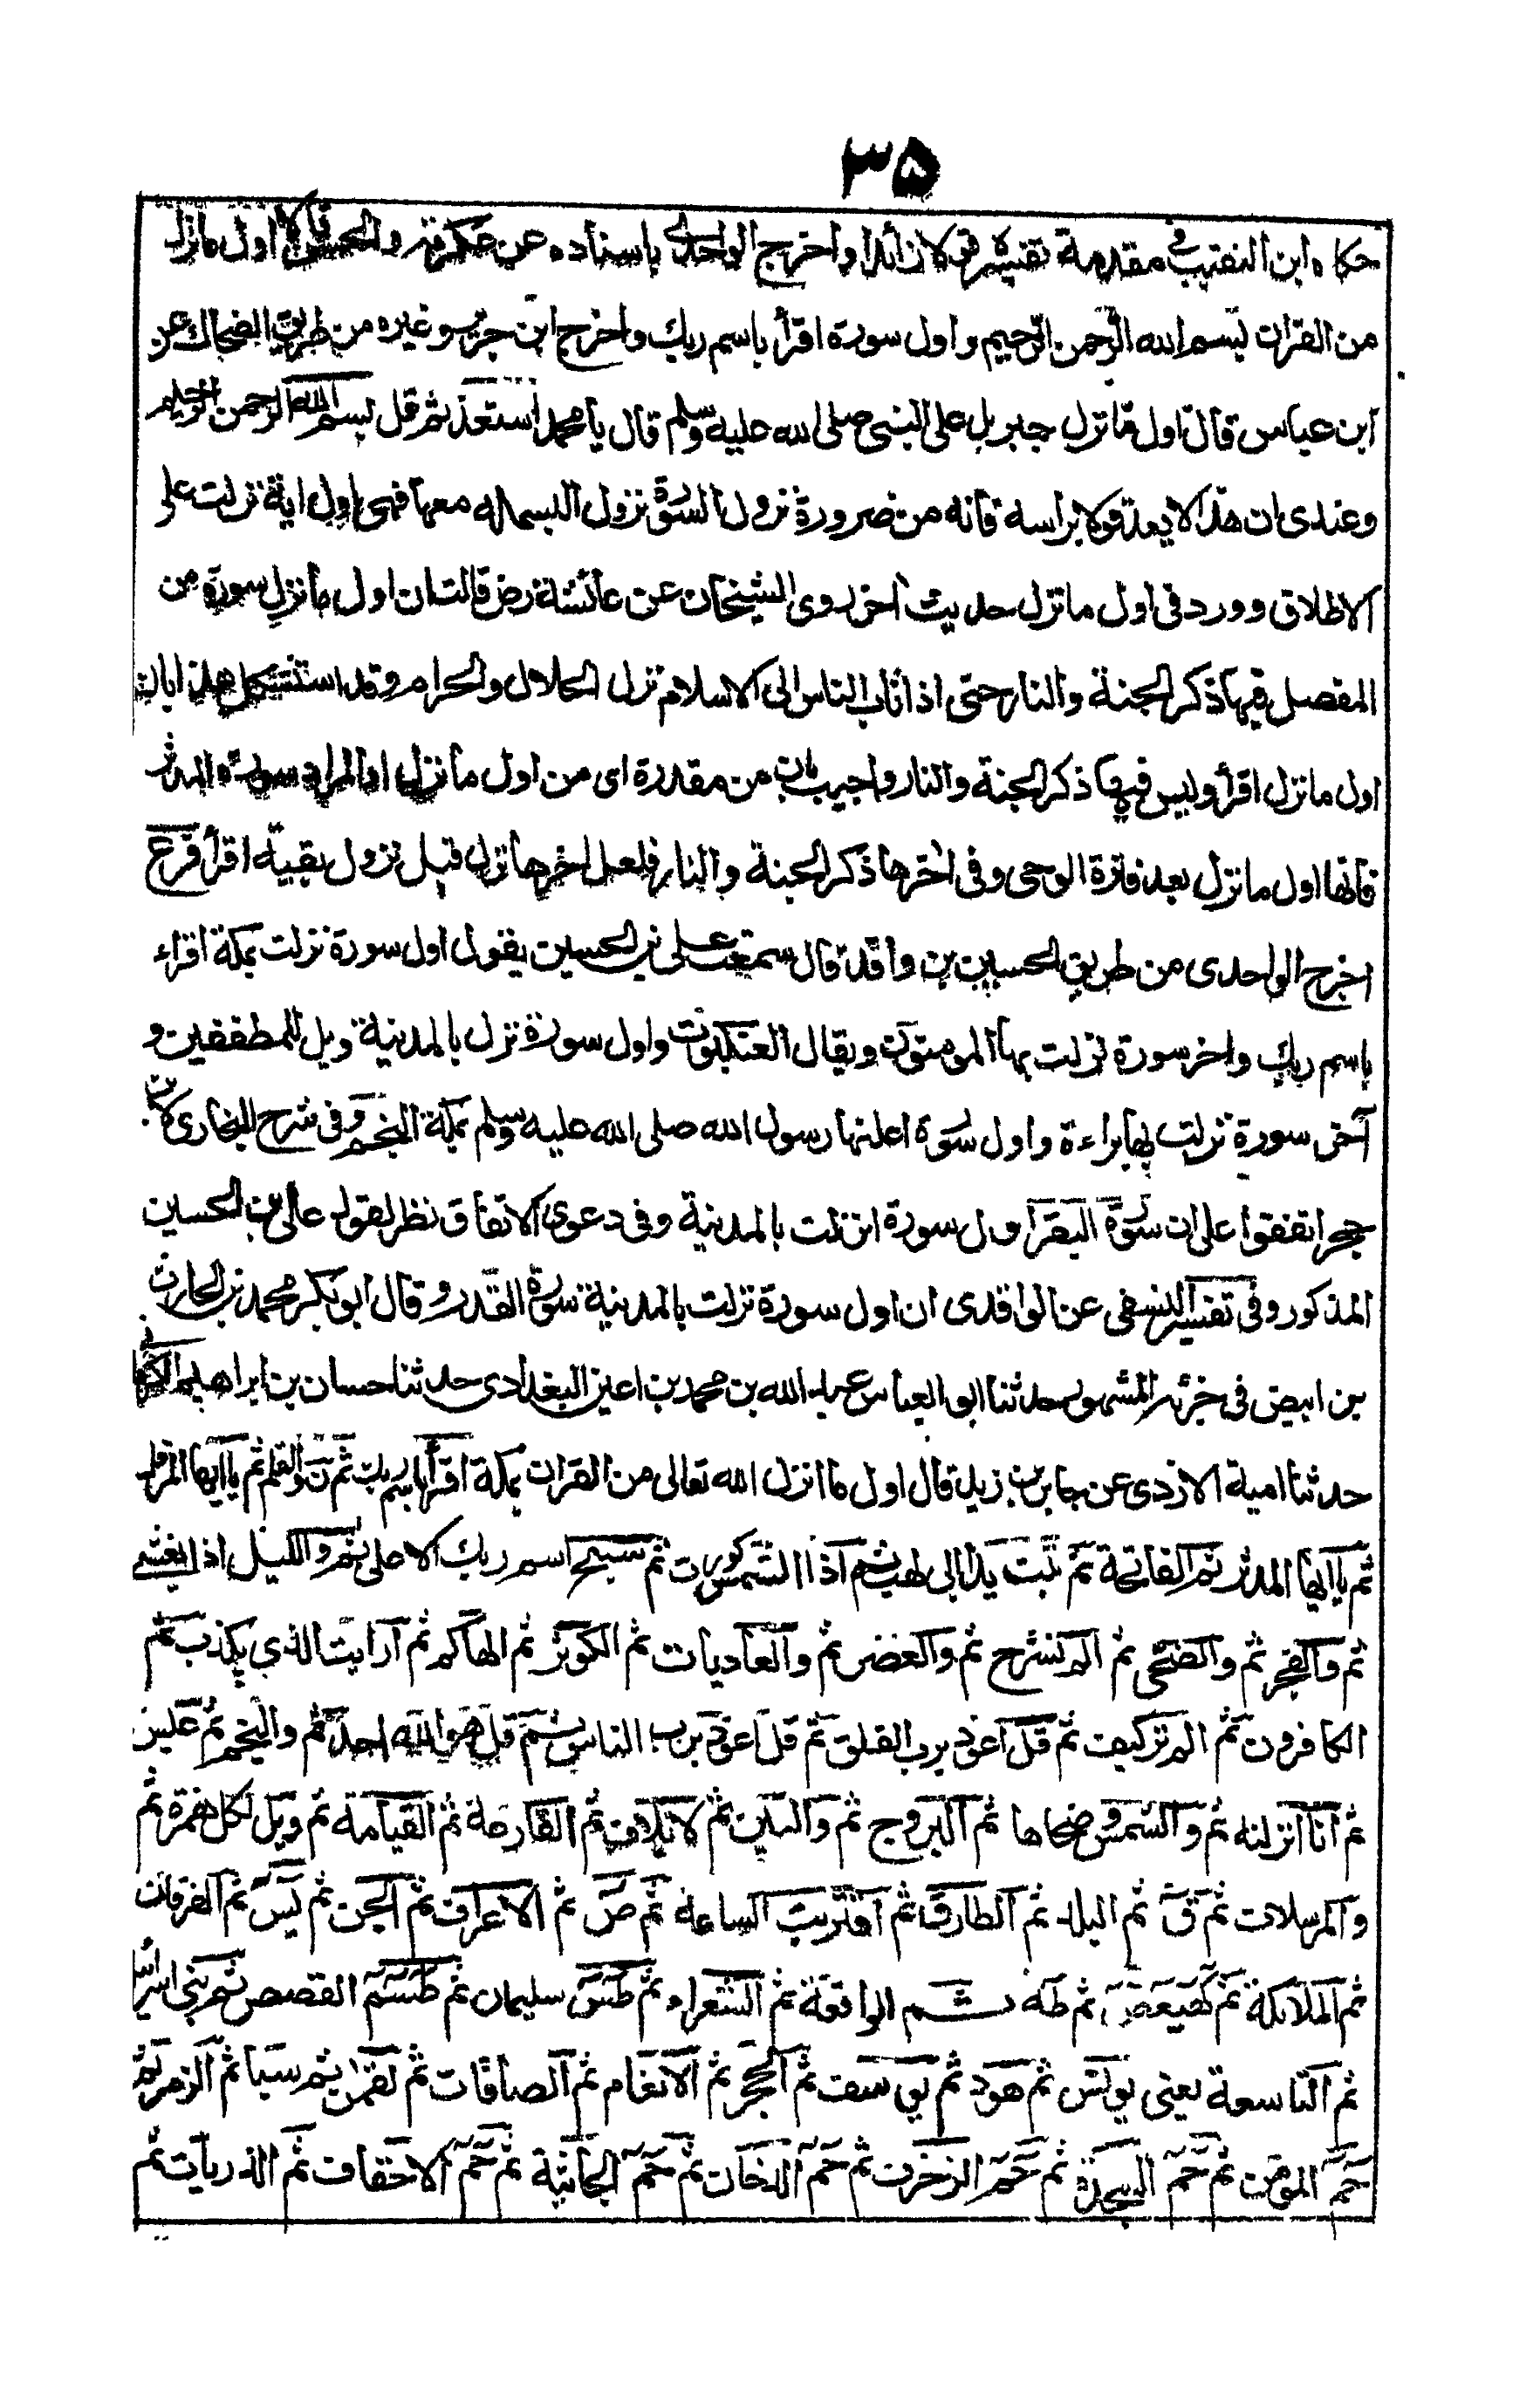 ۳۵
حكاه ابن النقيب في مقدمة تفسيره قولا زائدا واخرج الواحدى باسناده عن عكرمة والحسن قالا اول ما نزل
من القران بسم الله الرحمن الرحيم واول سورة اقرأ باسم ربك واخرج ابن جرير وغيره من طريق الضحاك عن
ابن عباس قال اول ما نزل جبريل على النبى صلى الله عليه وسلم قال يا محمد استعذ ثم قل بسم الله الرحمن الرحيم
وعندى ان هذا لا يعد قولا براسه فانه من ضرورة نزول السورة نزول البسمله معها فهى اول اية نزلت على
الاطلاق وورد فى اول ما نزل حديث اخر روى الشيخان عن عائشة رض قالت ان اول ما نزل سورة من
المفصل فيها ذكر الجنة والنار حتى اذا ثاب الناس الى الاسلام نزل الحلال والحرام وقد استشكل هذا بان
اول ما نزل اقرأ وليس فيها ذكر الجنة والنار واجيب بان من مقدرة اى من اول ما نزل او المراد سورة المدثر
فانها اول ما نزل بعد فترة الوحى وفى اخرها ذكر الجنة والنار فلعل اخرها نزل قبل نزول بقية اقرأ فرع
اخرج الواحدى من طريق الحسين بن واقد قال سمعت على بن الحسين يقول اول سورة نزلت بمكة اقراء
باسم ربك واخر سورة نزلت بها المومنون ويقال العنكبوت واول سورة نزل بالمدنية ويل للمطففين و
آخر سورة نزلت بها براءة واول سورة اعلنها رسول الله صلى الله عليه وسلم بمكة النجم وفى شرح البخارى لابن
حجر اتفقوا على ان سورة البقرا ول سورة انزلت بالمدنية وفى دعوى الاتفاق نظر لقول على بن الحسين
المذكور وفى تفسير النسفى عن الواقدى ان اول سورة نزلت بالمدنية سورة القدر وقال ابو بكر محمد بن الحارث
بن ابيض فى جزئه المشهور حدثنا ابو العباس عبد الله بن محمد بن اعين البغدادى حدثنا حسان بن ابراهيم الكرمانى
حدثنا امية الازدى عن جابر بن زيد قال اول ما انزل الله تعالى من القران بمكة اقرأ باسم ربك ثم ن والقلم ثم يا ايها المزمل
ثم يا ايها المدثر ثم الفاتحة ثم تبت يدا ابى لهب ثم اذا الشمس كورت ثم سبح اسم ربك الاعلى ثم والليل اذا يغشى
ثم والفجر ثم والضحى ثم الم نشرح ثم والعصر ثم والعاديات ثم الكوثر ثم الهاكم ثم ارايت الذى يكذب ثم
الكافرون ثم الم تر كيف ثم قل اعوذ برب الفلق ثم قل اعوذ برب الناس ثم قل هو الله احد ثم والنجم ثم عبس
ثم انا انزلنه ثم والشمس وضحاها ثم البروج ثم والتين ثم لايلاف ثم القارعة ثم القيامة ثم ويل لكل همزة ثم
والمرسلات ثم ق ثم البلد ثم الطارق ثم اقتربت الساعة ثم ص ثم الاعراف ثم الجن ثم يس ثم الفرقان
ثم الملائكة ثم كهيعص ثم طه ثم الواقعة ثم الشعراء ثم طس سليمان ثم طسم القصص ثم بنى اسرائيل
ثم التاسعة يعنى يونس ثم هود ثم يوسف ثم الحجر ثم الانعام ثم الصافات ثم لقمن ثم سبا ثم الزمر ثم
حم المؤمن ثم حم السجدة ثم حم الزخرف ثم حم الدخان ثم حم الجاثية ثم حم الاحقاف ثم الذريات ثم